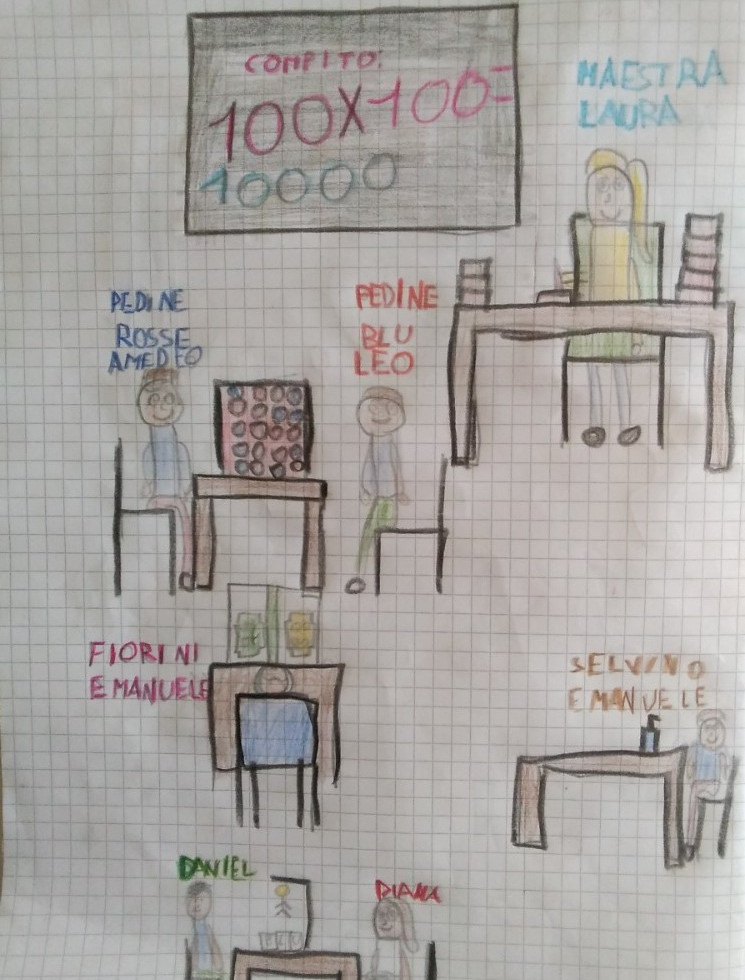 COMPITO:
100X100=
10000
MAESTRA
LAURA
PEDINE
ROSSE
AMEDEO
PEDINE
BLU
LEO
FIORINI
EMANUELE
SELVINO
EMANUELE
DANIEL
DIANA